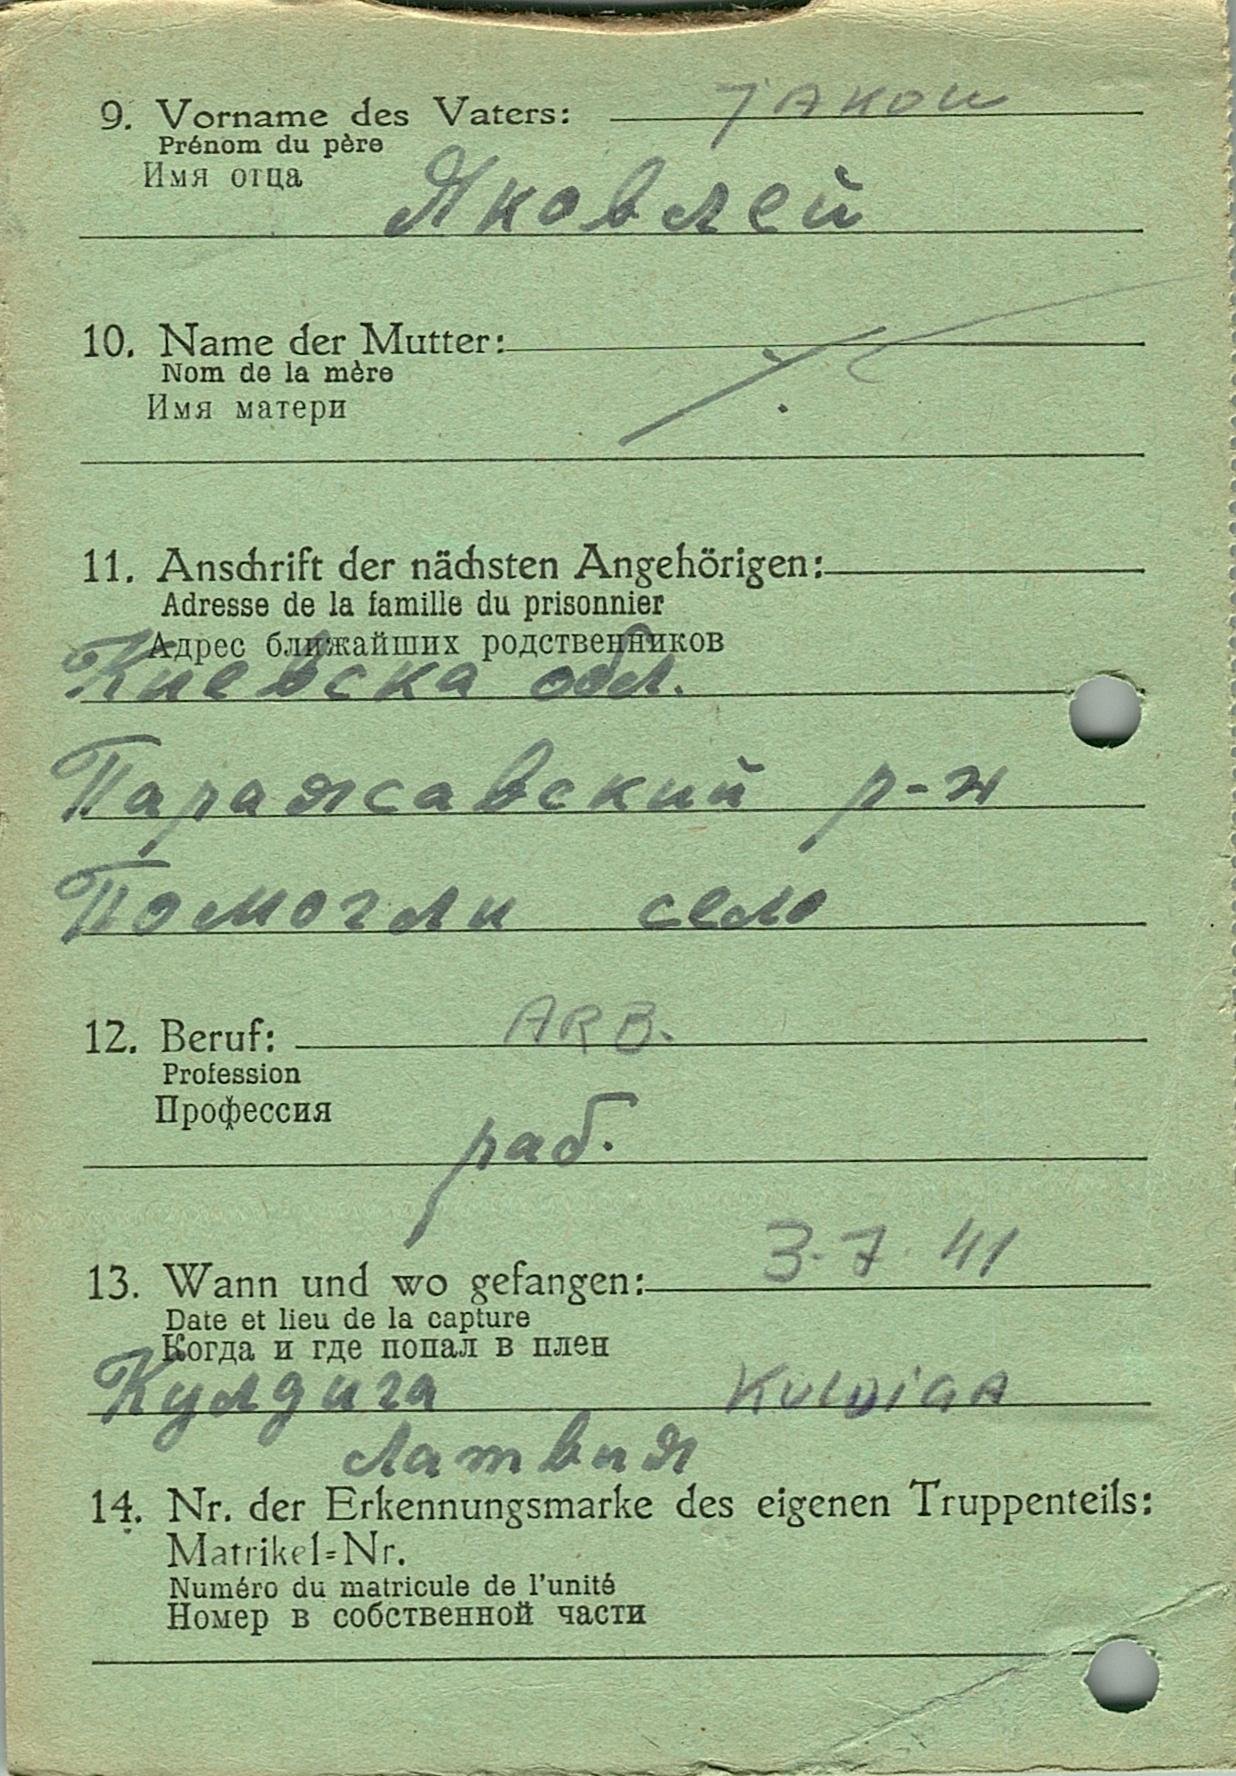 9. Vorname des Vaters: JAKOW
Prénom du père
Имя отца
Яковлей
10. Name der Mutter:
Nom de la mère
Имя матери
11. Anschrift der nächsten Angehörigen:
Adresse de la famille du prisonnier
Адрес ближайших родственников
Киевска обл.
Паражавский р-н
Помогли село
12. Beruf: ARB.
Profession
Профессия
раб.
13. Wann und wo gefangen: 3.7.41
Date et lieu de la capture
Когда и где попал в плен
Кулдига KULDiGA
Латвия
14. Nr. der Erkennungsmarke des eigenen Truppenteils:
Matrikel=Nr.
Numéro du matricule de l'unité
Номер в собственной части